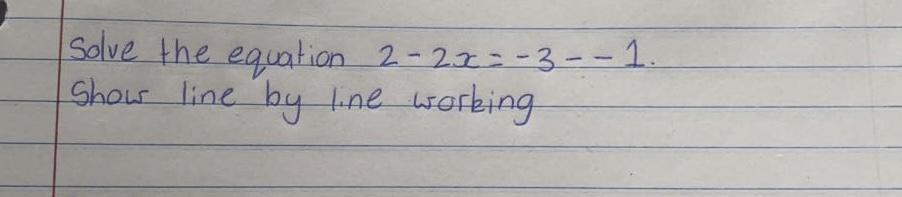 Solve the equation 2-2x=-3--1.
Show line by line working